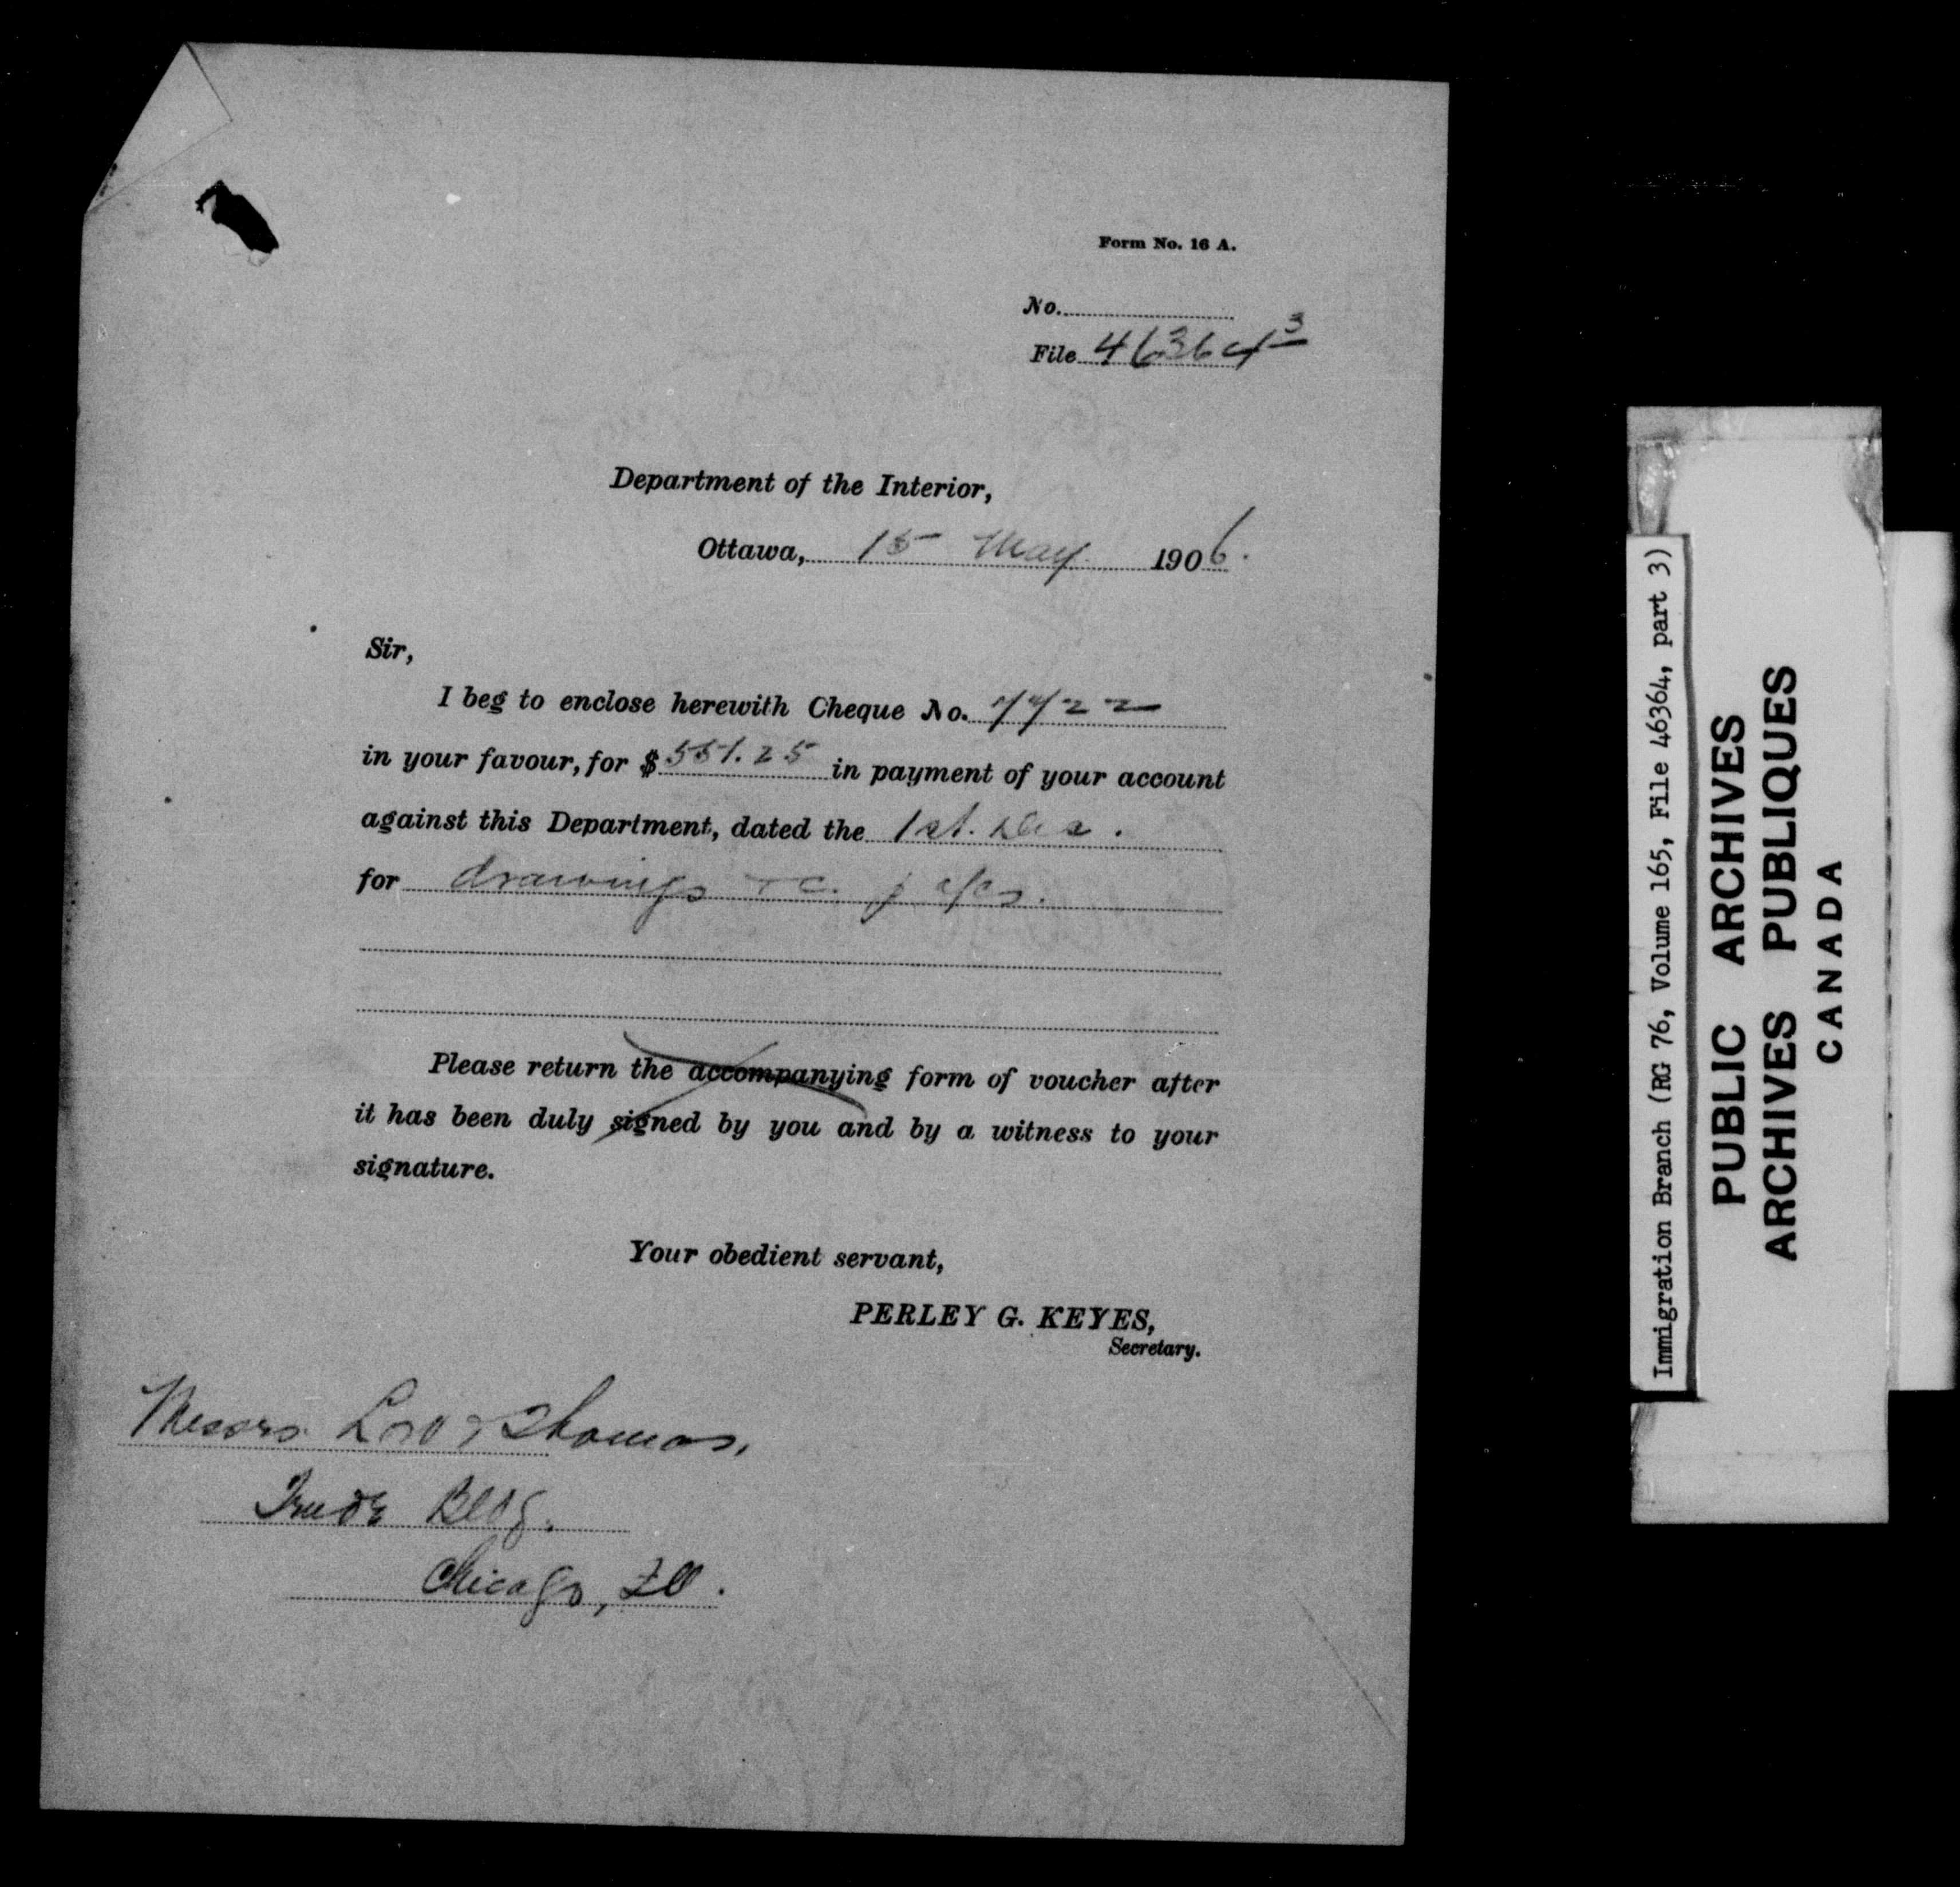 Form No. 16 A.
No.
File 46364 3
Department of the Interior,
Ottawa, 15 May 1906.
Sir,
I beg to enclose herewith Cheque No. 7722
in your favour, for $551.25 in payment of your account
against this Department, dated the 1st.
for drawings
Please return the accompanying form of voucher after
it has been duly signed by you and by a witness to your
signature.
Your obedient servant,
PERLEY G. KEYES,
Secretary.
Messrs. Lord & Thomas,
Trude Bldg.
Chicago, Ill.
Immigration Branch (RG 76, Volume 165, File 46364, part 3)
PUBLIC ARCHIVES
ARCHIVES PUBLIQUES
CANADA